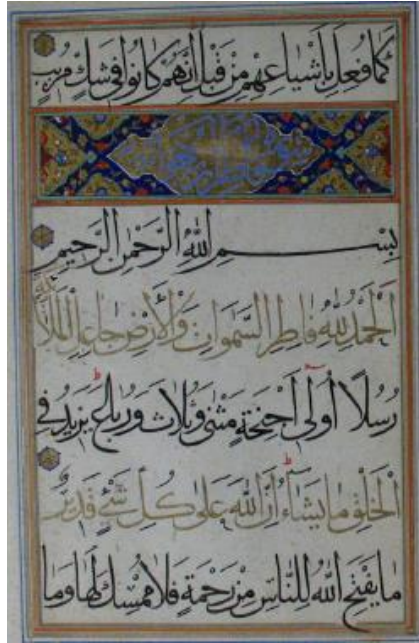 كَمَا فُعِلَ بِأَشْيَاعِهِمْ مِنْ قَبْلُ إِنَّهُمْ كَانُوا فِي شَكٍّ مُرِيبٍ
بِسْمِ اللَّهِ الرَّحْمَنِ الرَّحِيمِ
اَلْحَمْدُ لِلَّهِ فَاطِرِ السَّمَوَاتِ وَالْأَرْضِ جَاعِلِ الْمَلَا
رُسُلًا أُولِي أَجْنِحَةٍ مَثْنَى وَثُلَاثَ وَرُبَاعَ يَزِيدُ فِي
الْخَلْقِ مَا يَشَاءُ إِنَّ اللَّهَ عَلَى كُلِّ شَيْءٍ قَدِيرٌ
مَا يَفْتَحِ اللَّهُ لِلنَّاسِ مِنْ رَحْمَةٍ فَلَا مُمْسِكَ لَهَا وَمَا